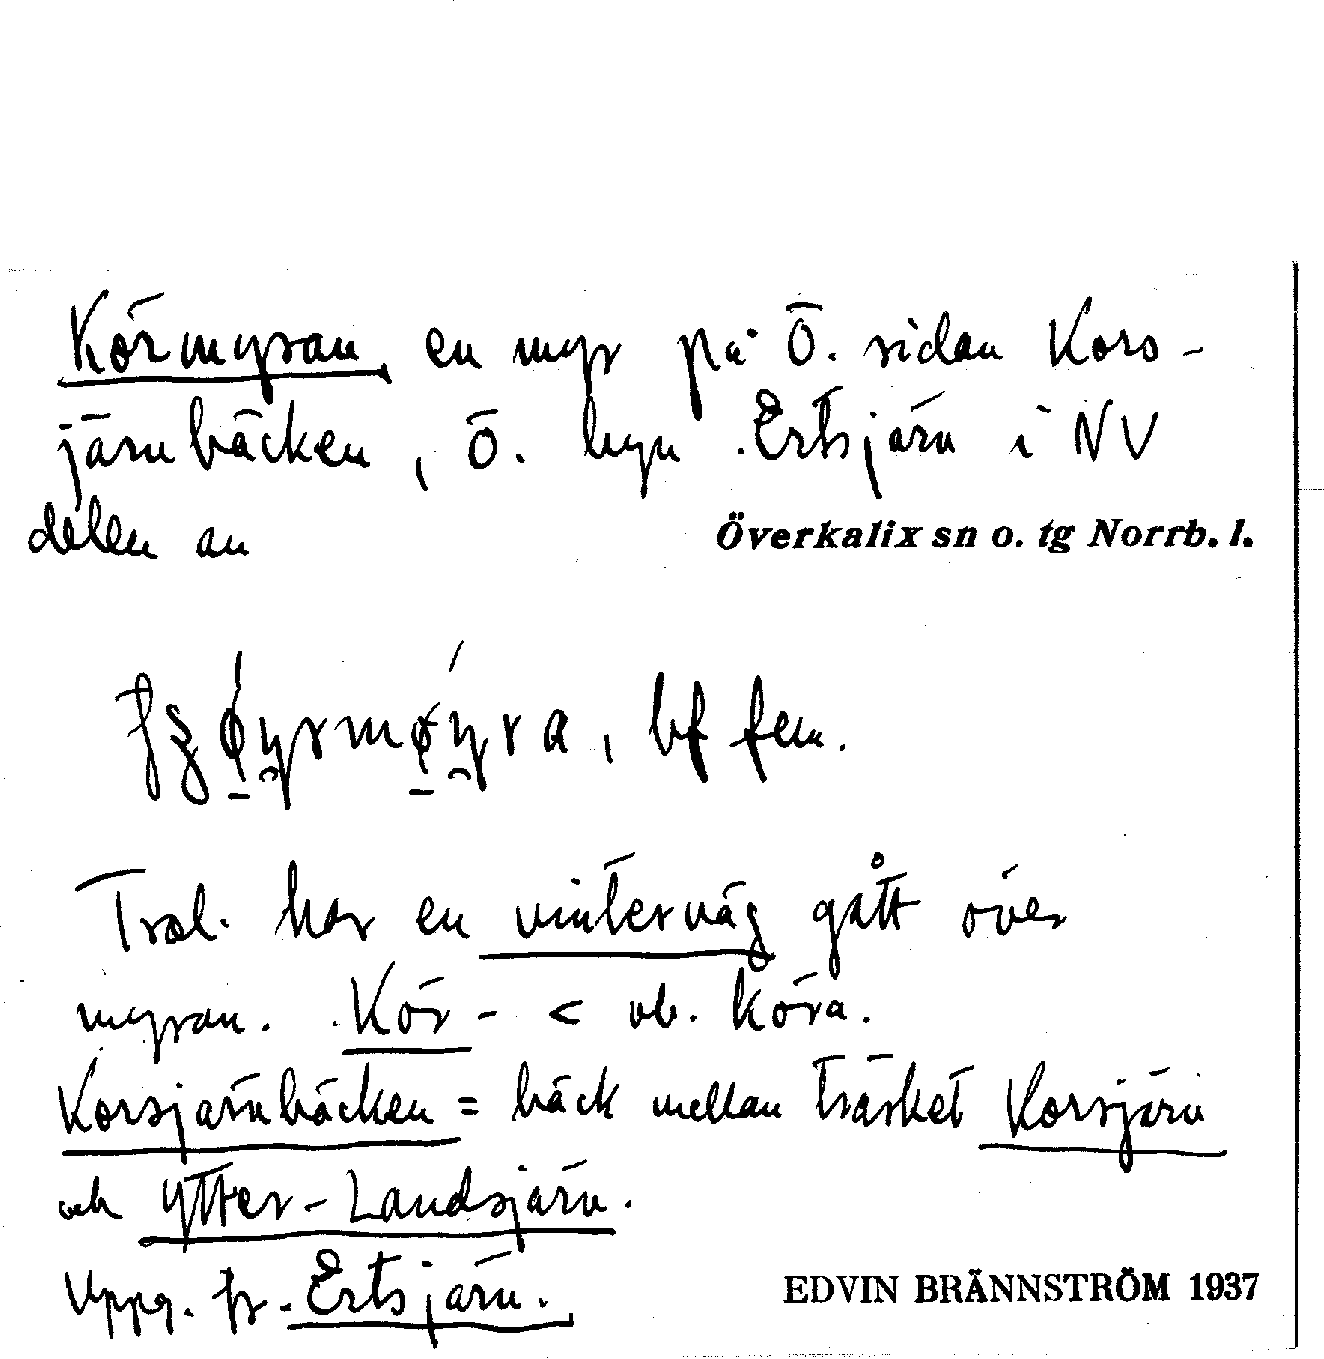 Körmyran, en myr på Ö. sidan Kors-
järvbäcken, Ö. byn Ertsjärv i NV
delen av Överkalix sn o. tg Norrb. l.
bf fem.
Trol. har en vinterväg gått över
myran. Kör- < vb. köra.
Korsjärvbäcken = bäck mellan träsket Korsjärv
och Ytter-Landsjärv.
Uppg. fr. Ertsjärv.
EDVIN BRÄNNSTRÖM 1937